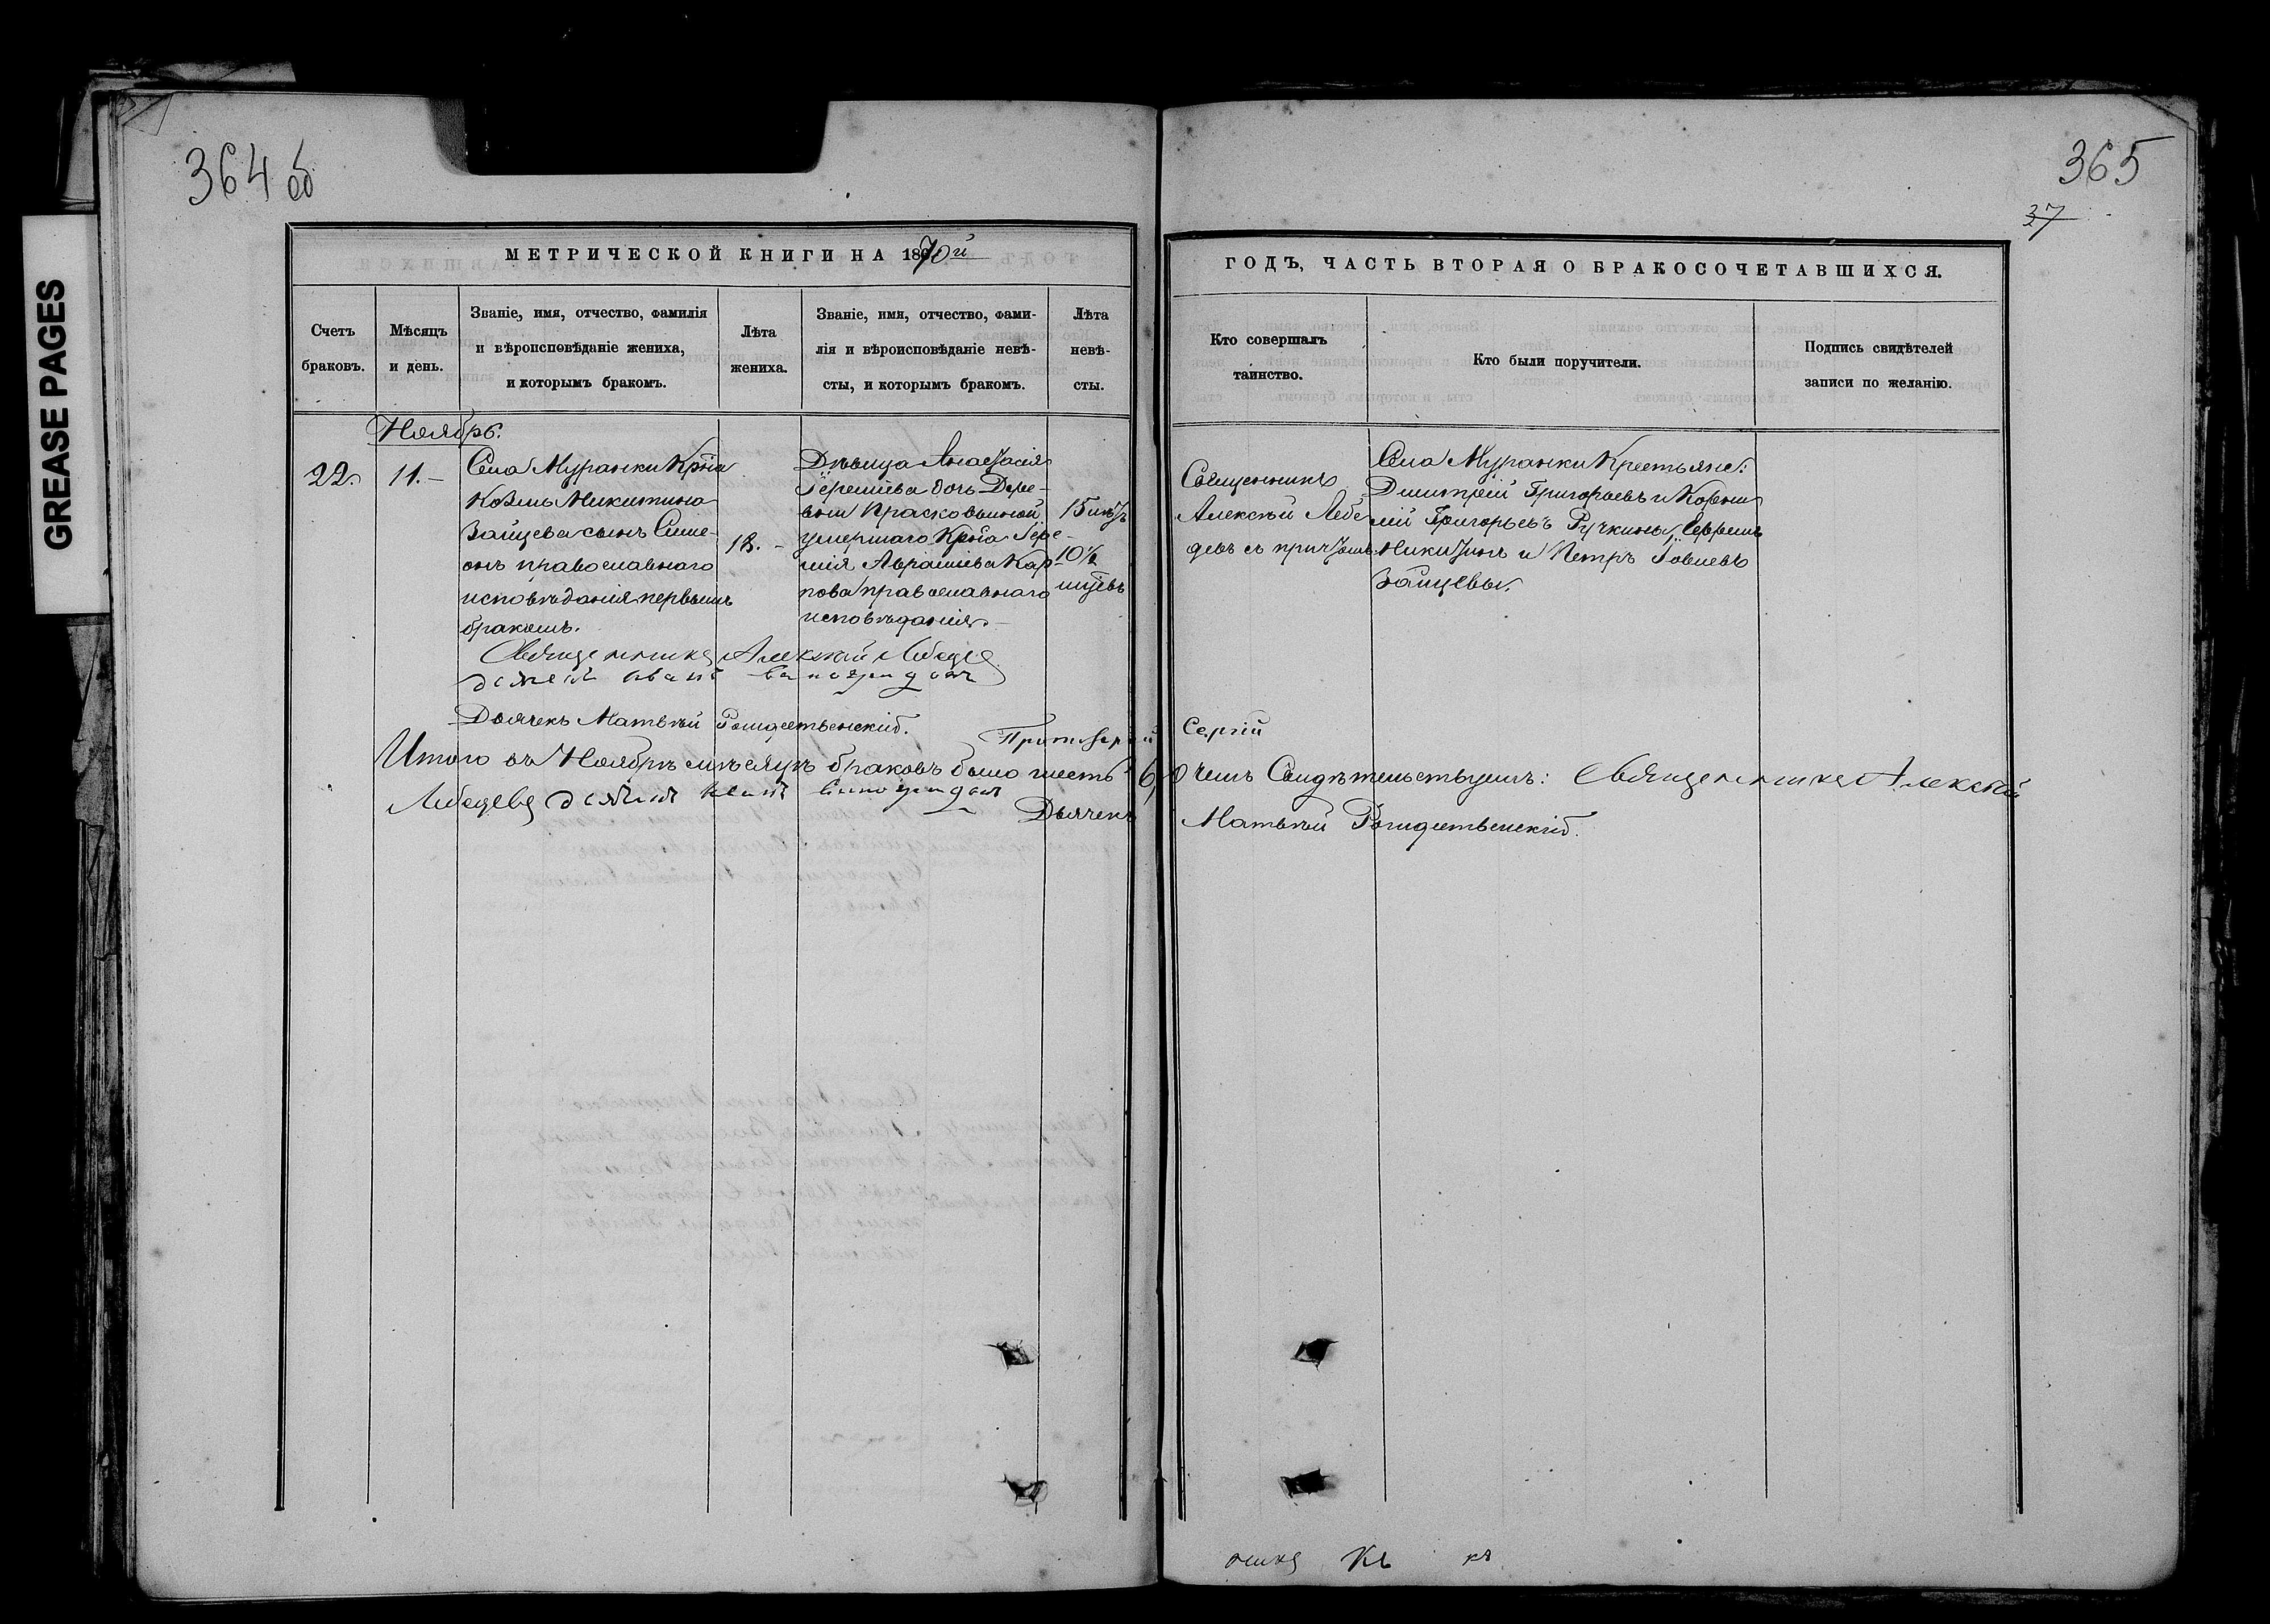 GREASE PAGES
364 об
365
37
МЕТРИЧЕСКОЙ КНИГИ НА 1870й
ГОДЪ, ЧАСТЬ ВТОРАЯ О БРАКОСОЧЕТАВШИХСЯ.
Счетъ
браковъ.
Мѣсяцъ
и день.
Званіе, имя, отчество, фамилія
и вѣроисповѣданіе жениха,
и которымъ бракомъ.
Лѣта
жениха.
Званіе, имя, отчество, фами-
лія и вѣроисповѣданіе невѣ-
сты, и которымъ бракомъ.
Лѣта
невѣ-
сты.
Кто совершалъ
таинство.
Кто были поручители.
Подпись свидѣтелей
записи по желанію.
Ноябрь.
22.
11.-
Села Муранки Крña
Козмы Никитина
Зайцева сынъ Симе-
онъ православнаго
исповѣданія первымъ
бракомъ.
18.-
Дѣвица Анастасія
Іереміева дочь Дере-
вни Прасковьиной
умершаго Крña Іере-
мія Авраміева Кар
пова православнаго
исповѣданія.-
15 лѣтъ
10½
мцевъ
Священникъ
Алексѣй Лебе
девъ съ причтомъ.
Села Муранки Крестьяне:
Димитрій Григорьевъ и Корни
лій Григорьевъ Ручкины, Ефремъ
Никитинъ и Петръ Іовлевъ
Зайцевы.
Священникъ Алексѣй Лебеде
діаконъ Иванъ Виноградовъ
Дьячекъ Матвѣй Рождественскій.
Протоіерей Сергій
Итого въ Ноябрѣ мѣсяцѣ браковъ было шесть 6, О чемъ Свидѣтельствуемъ: Священникъ Алексѣй
Лебедевъ діаконъ Иванъ Виноградовъ Дьячекъ Матвѣй Рождественскій.
никъ къ къ